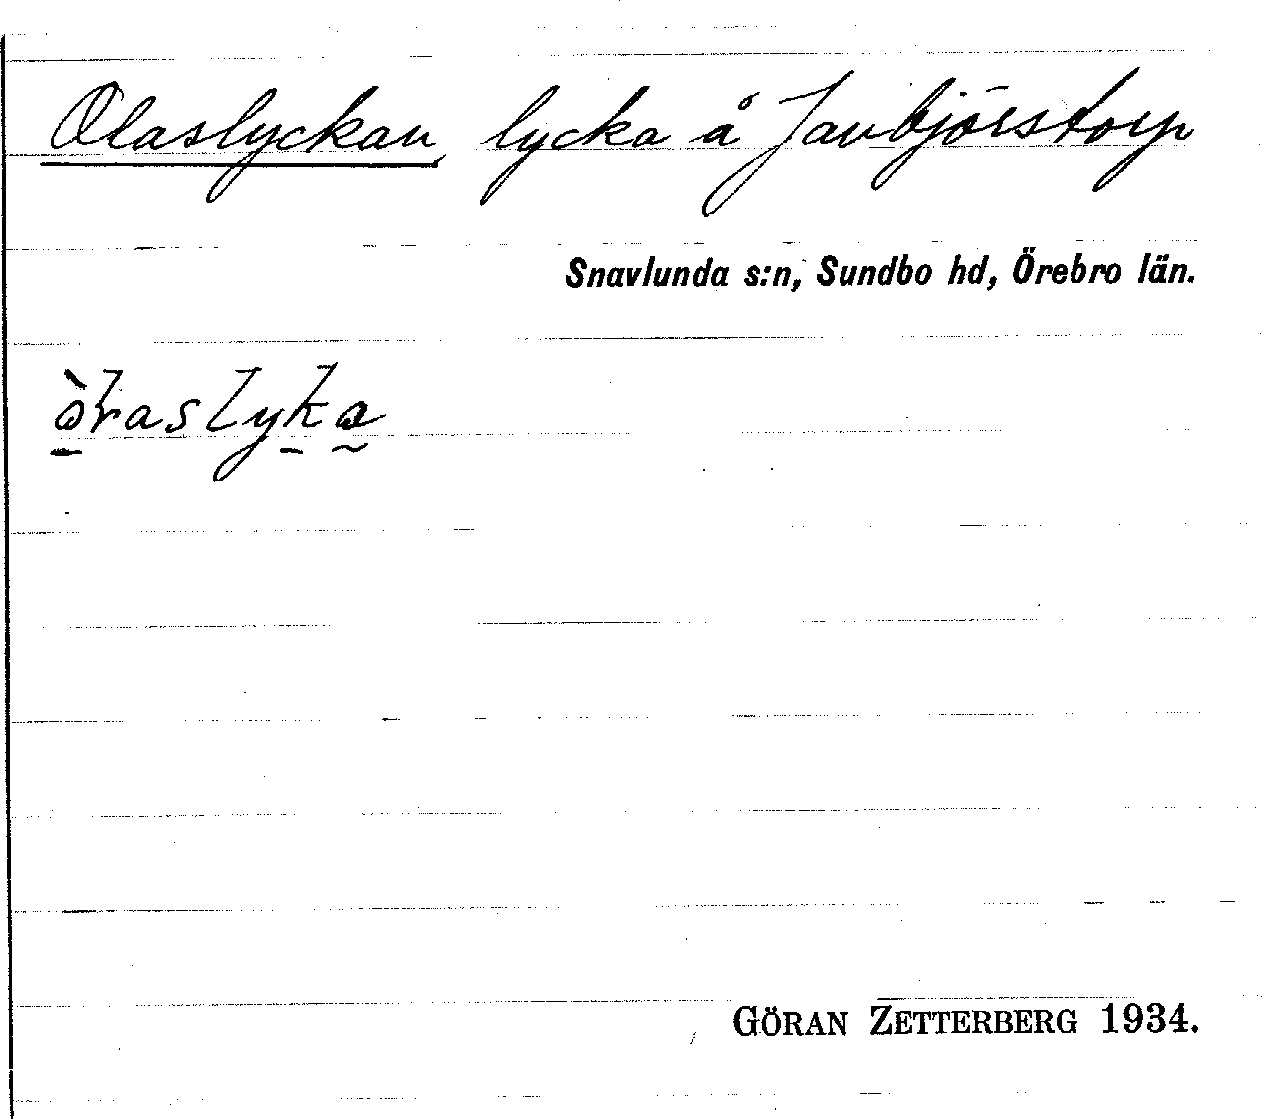 Olaslyckan, lycka å Janbjörstorp
Snavlunda s:n, Sundbo hd, Örebro län.
GÖRAN ZETTERBERG 1934.